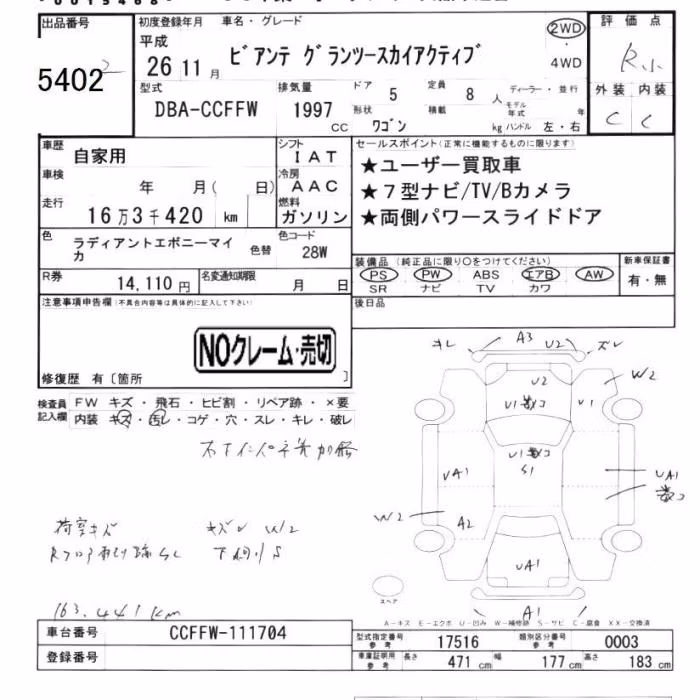 出品番号 初度登録年月 車名・グレード 2WD 評価点
5402 平成 26 11月 ビアンテ グランツースカイアクティブ 4WD R小
型式 排気量 ドア 5 定員 8人 ディーラー・並行 外装 内装
DBA-CCFFW 1997 CC 形状 ワゴン 積載 kg モデル年式 年 ハンドル 左・右 C C
車歴 自家用 シフト IAT セールスポイント(正常に機能するものに限ります)
車検 年 月( 日) 冷房 AAC ★ユーザー買取車
走行 16万3千420km 燃料 ガソリン ★7型ナビ/TV/Bカメラ
★両側パワースライドドア
色 ラディアントエボニーマイカ 色替 色コード 28W
装備品(純正品に限り○をつけてください) 新車保証書
PS PW ABS エアB AW 有・無
SR ナビ TV カワ
R券 14,110円 名変通知期限 月 日
後日品
注意事項申告欄(不具合内容等は具体的に記入して下さい)
NOクレーム・売切
修復歴 有〔箇所 〕
検査員記入欄 FW キズ・飛石・ヒビ割・リペア跡・×要
内装 キズ・汚レ・コゲ・穴・スレ・キレ・破レ
キレ A3 U2 ズレ
U2 W2
U1 U1
U1
S1
UA1 UA1
W2 A2
荷室キズ W2
下回りS
UA1
スペア
163,441km A1
A-キズ E-エクボ U-凹み W-補修跡 S-サビ C-腐食 XX-交換済
車台番号 CCFFW-111704 型式指定番号 参考 17516 類別区分番号 参考 0003
登録番号 車庫証明用 参考 長さ 471cm 幅 177cm 高さ 183cm